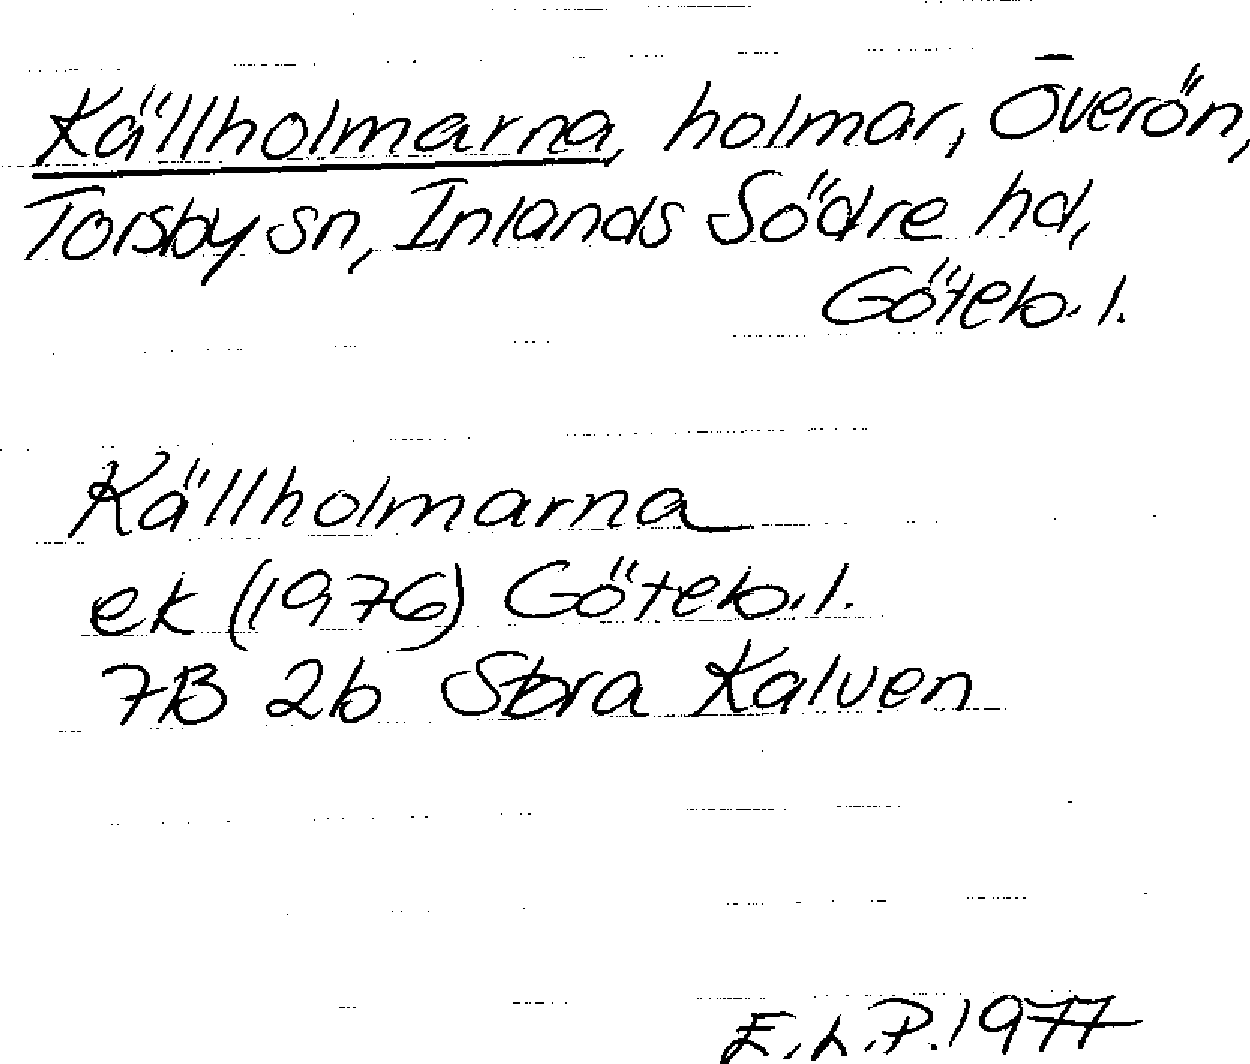 Källholmarna, holmar, Överön,
Torsby sn, Inlands Södre hd,
Göteb. l.
Källholmarna
ek (1976) Göteb. l.
7B 2b Stora Kalven
E.L.P. 1977